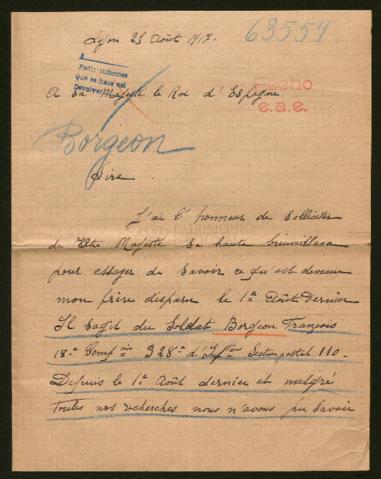 Lyon 25 Août 1917.
63559
Pedir informes
que se hace est
Devolver
Fecho
e.a.e.
A Sa Majesté le Roi d'Espagne
Borgeon
Sire
J'ai l'honneur de solliciter
de Votre Majesté sa haute bienveillance
pour essayer de savoir ce qu'est devenu
mon frère disparu le 1er Août dernier
Il sagit du Soldat Borgeon François
18e Compnie 228e d'Inftrie Section postal 110.
Depuis le 1er Août dernier et malgré
toutes nos recherches nous n'avons pu savoir